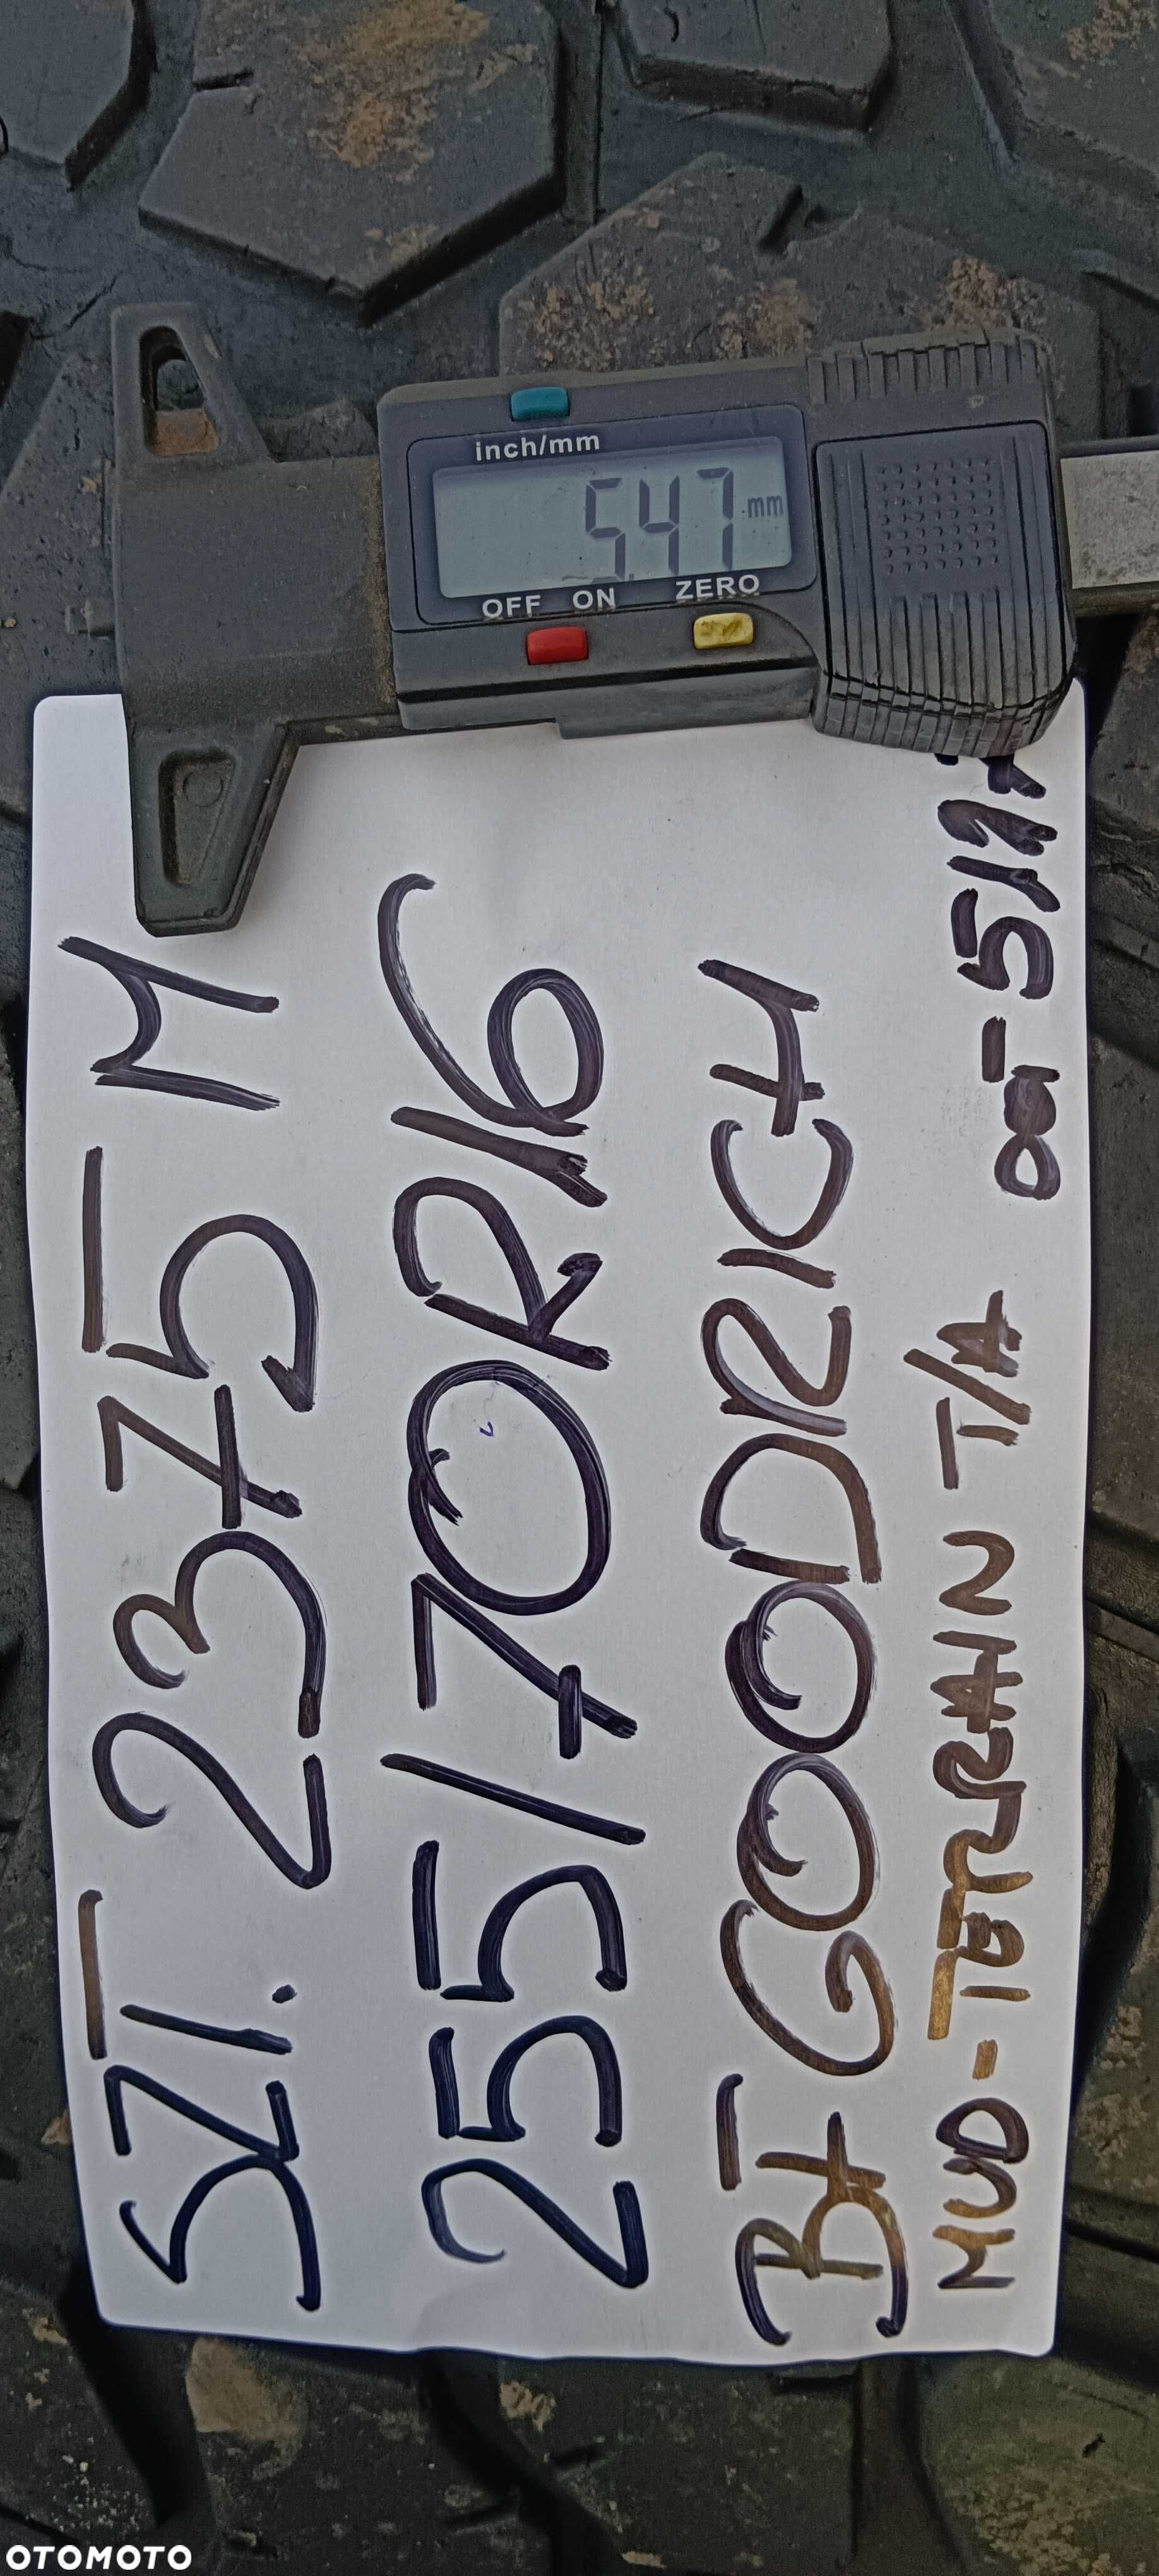 inch/mm
5.47 mm
OFF ON ZERO
SZT. 2375 M
255/70R16
BF GOODRICH
MUD-TERRAIN T/A
OTOMOTO